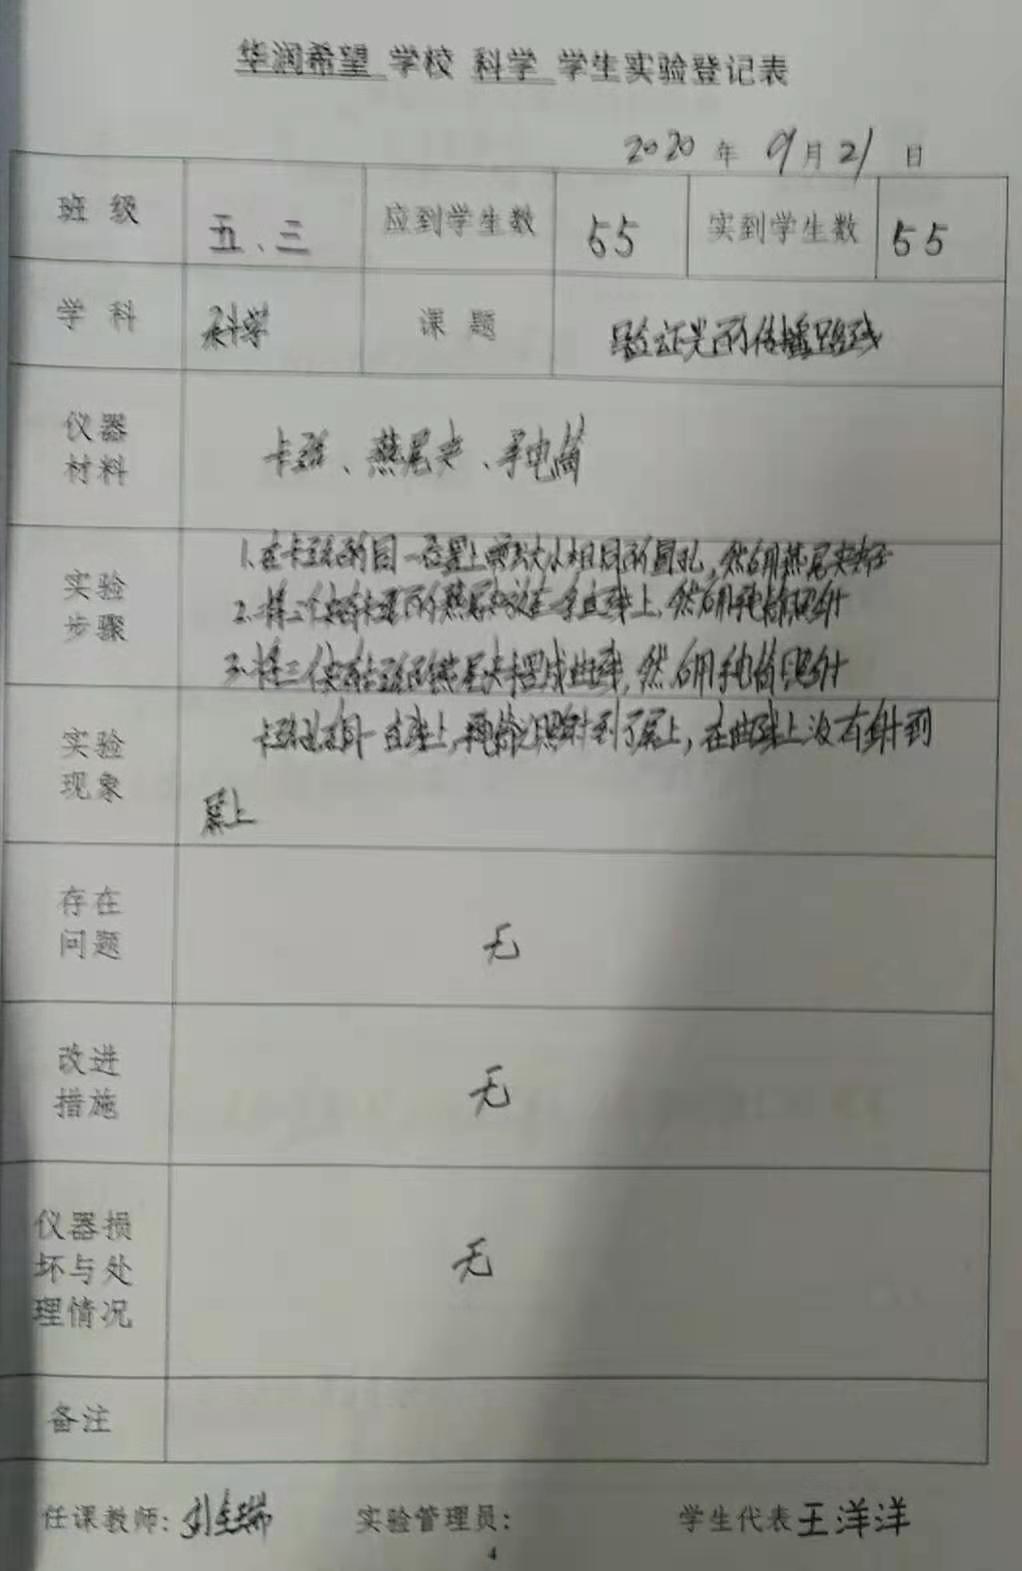 华润希望 学校 科学 学生实验登记表
2020 年 9月21 日
班级 五、三 应到学生数 55 实到学生数 55
学科 科学 课题 验证光的传播路线
仪器材料 卡纸、燕尾夹、手电筒
实验步骤
1.在卡纸的同一位置上 大小相同的圆孔,然后用燕尾夹夹住
2.将三 卡纸 燕尾夹 在一条直线上,然后用手电筒照射
3.将三 卡纸 燕尾夹 摆成曲线,然后用手电筒照射
实验现象
卡纸 在同一直线上,手电筒 照射到了屏上,在曲线上没有射到
屏上
存在问题 无
改进措施 无
仪器损坏与处理情况 无
备注
任课教师: 刘 瑞 实验管理员: 学生代表 王洋洋
4